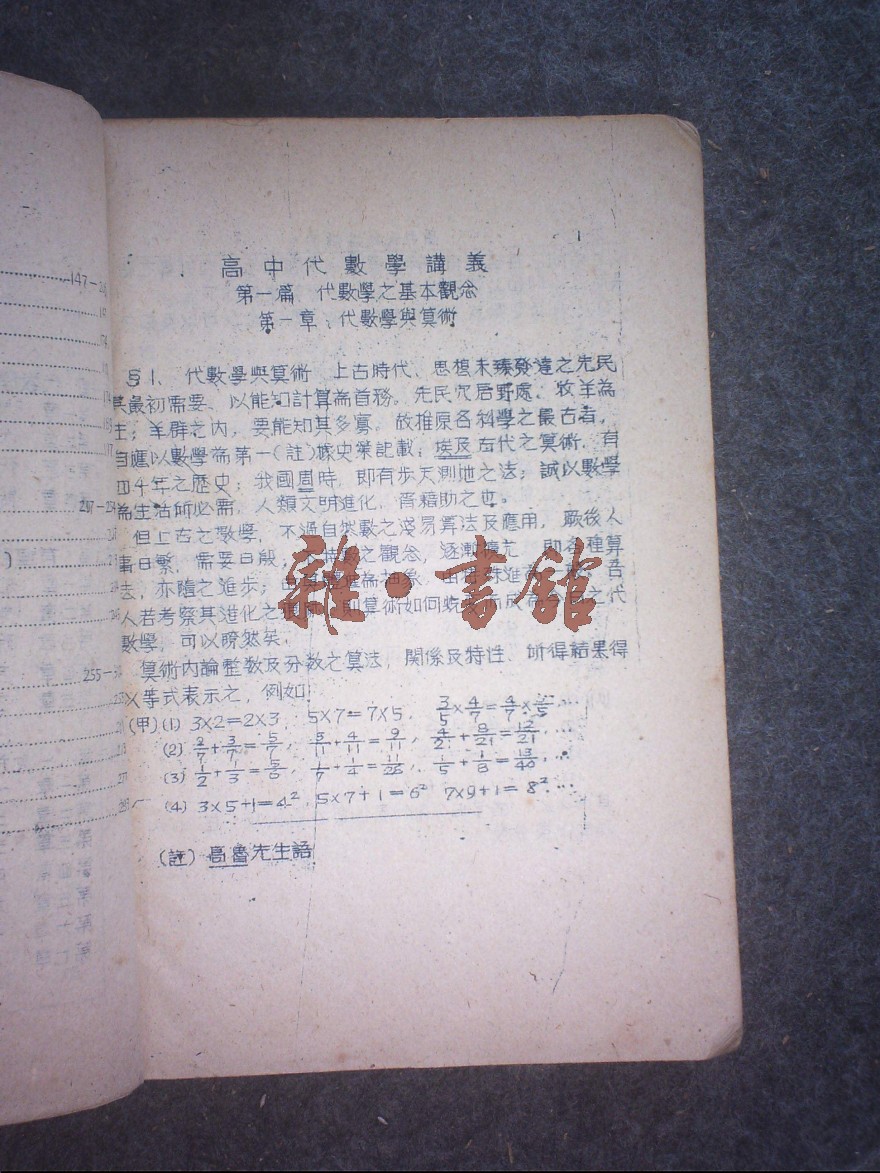 1
高中代數學講義
第一篇 代數學之基本觀念
第一章 代數學與算術
§1. 代數學與算術 上古時代、思想未臻發達之先民
其最初需要、以能知計算為首務。先民穴居野處、牧羊為
生；羊群之內，要能知其多寡，故推原各科學之最古者，
自應以數學為第一(註)據史策記載，埃及古代之算術，有
四千年之歷史；我國周時，即有步天測地之法；誠以數學
為生活所必需，人類文明進化，胥藉助之也。
但上古之數學，不過自然數之淺易算法及應用，厥後人
事日繁，需要日殷，之觀念，逐漸擴充，即各種算
法，亦隨之進步；為抽象，吾
人若考察其進化之，則算術如何之代
數學，可以瞭然矣。
算術內論整數及分數之算法，關係及特性、所得結果得
以等式表示之，例如
(甲)(1) 3×2=2×3, 5×7=7×5, 3/5×4/7=4/7×3/5, …
(2) 2/7+3/7=5/7, /11+4/11=9/11, 4/21+8/21=12/21, …
(3) 1/2+1/3=5/6, 1/7+1/4=11/28, 1/5+1/8=13/40, …
(4) 3×5+1=4², 5×7+1=6², 7×9+1=8², …
(註) 高魯先生語
雜·書館
147-
255-